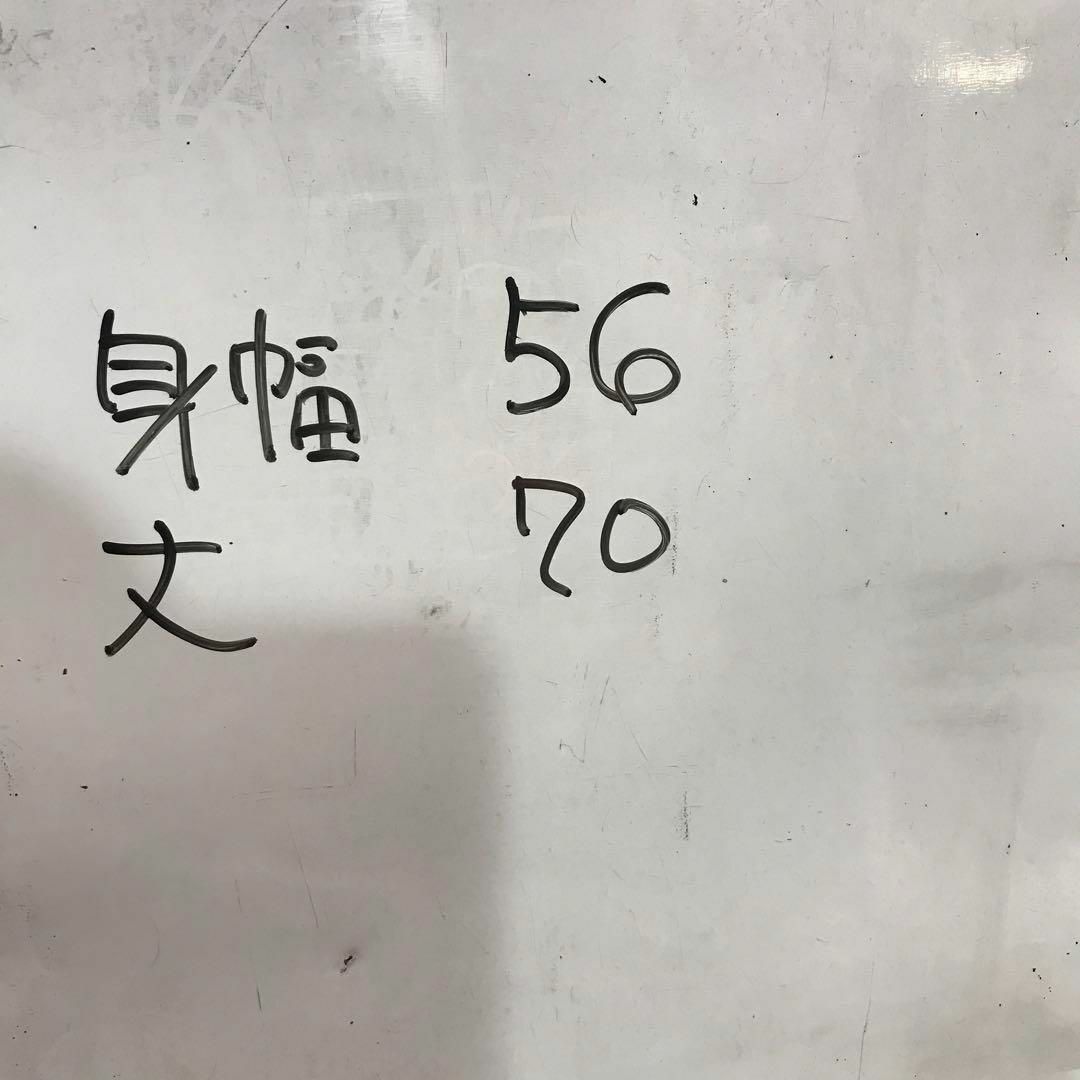 身幅 56
丈 70